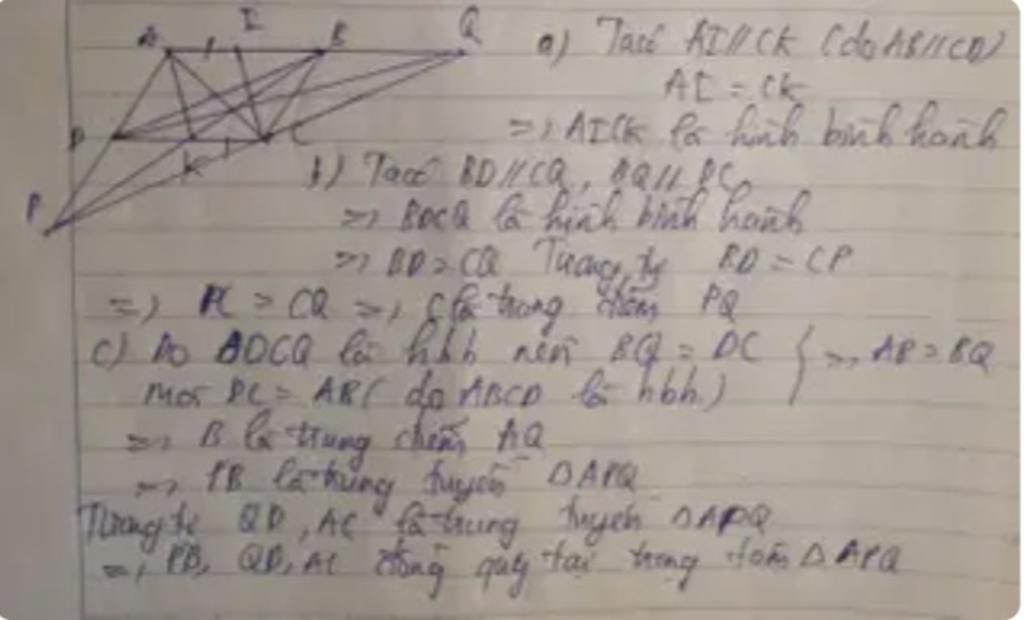 A I B Q
D K C
P
a) Ta có AI // CK (do AB // CD)
AI = CK
=> AICK là hình bình hành
b) Ta có BD // CQ, BQ // DC
=> BDCQ là hình bình hành
=> BD = CQ Tương tự BD = CP
=> PC = CQ => C là trung điểm PQ
c) Do BDCQ là hbh nên BQ = DC } => AB = BQ
mà DC = AB ( do ABCD là hbh )
=> B là trung điểm AQ
=> PB là trung tuyến △APQ
Tương tự QD, AC là trung tuyến △APQ
=> PB, QD, AC đồng quy tại trọng tâm △APQ